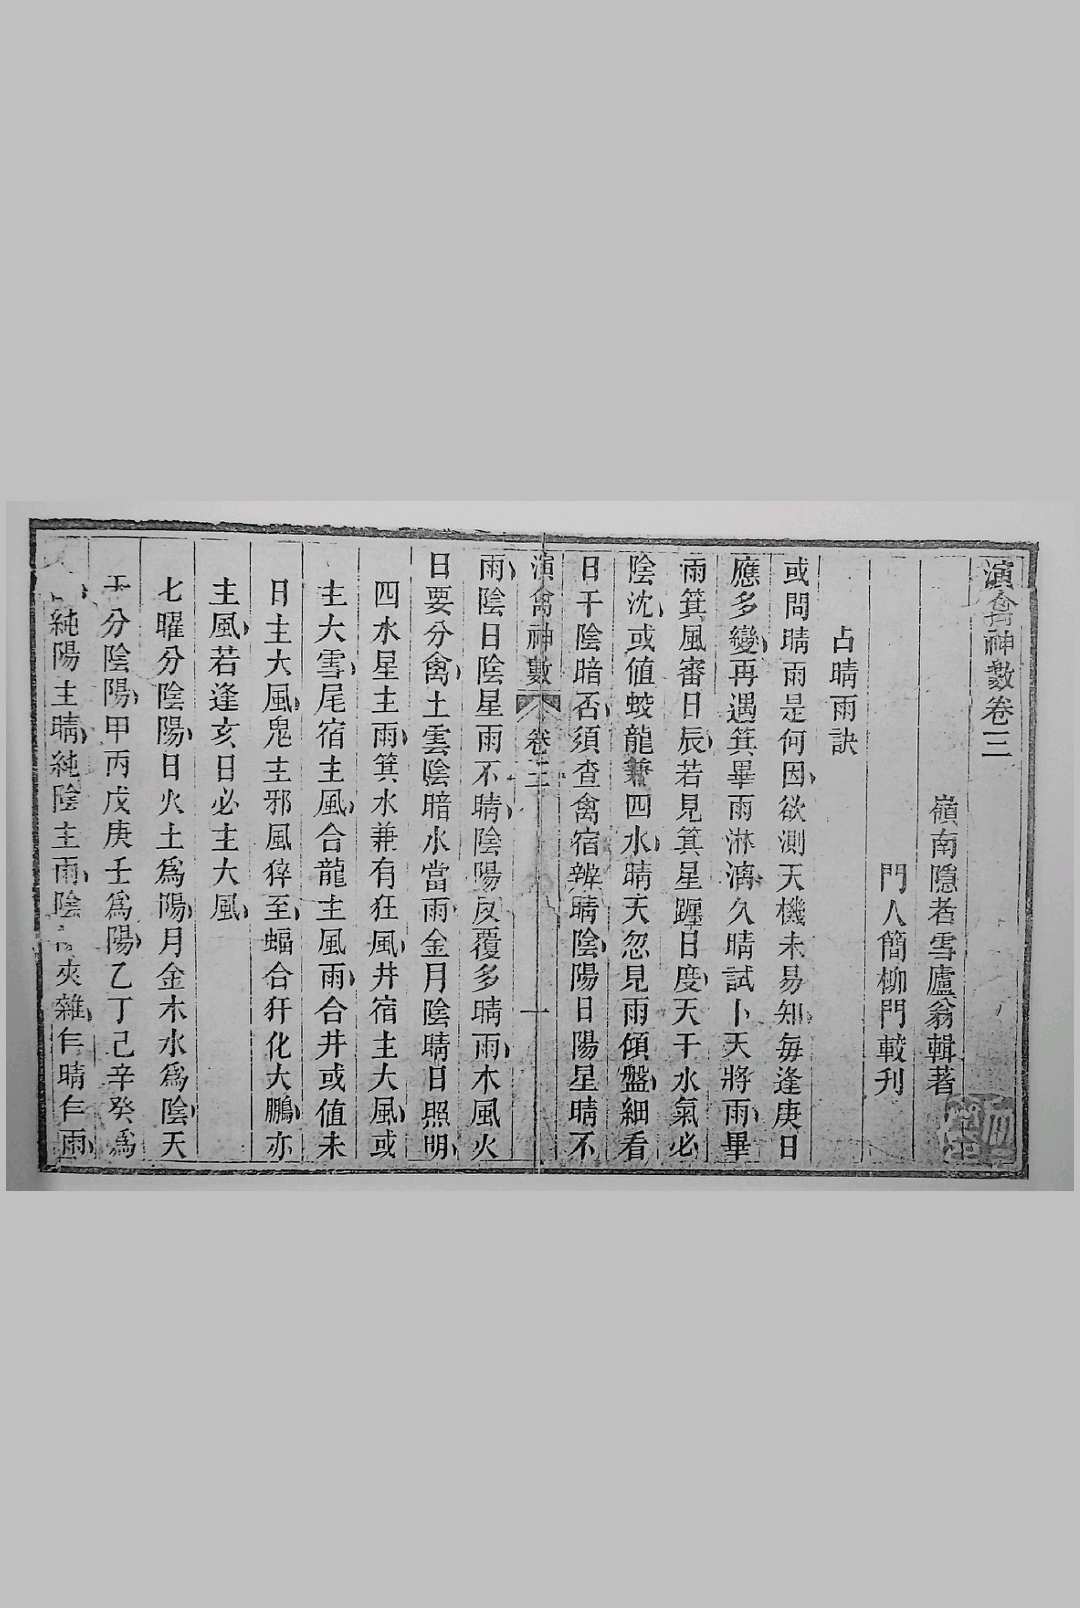 演禽神數卷三
嶺南隱者雪廬翁輯著
門人簡柳門較刋
占晴雨訣
或問晴雨是何因欲測天機未易知每逢庚日
應多變再遇箕畢雨淋漓久晴試卜天將雨畢
雨箕風審日辰若見箕星躔日度天干水氣必
陰沈或值蛟龍兼四水晴天忽見雨傾盤細看
日干陰暗否須查禽宿辨晴陰陽日陽星晴不
演禽神數 卷三 一
雨陰日陰星雨不晴陰陽反覆多晴雨木風火
日要分禽土雲陰暗水當雨金月陰晴日照明
四水星主雨箕水兼有狂風井宿主大風或
主大雪尾宿主風合龍主風雨合井或值未
日主大風鬼主邪風猝至蝠合犴化大鵬亦
主風若逢亥日必主大風
七曜分陰陽日火土為陽月金木水為陰天
干分陰陽甲丙戊庚壬為陽乙丁己辛癸為
純陽主晴純陰主雨陰夾雜乍晴乍雨